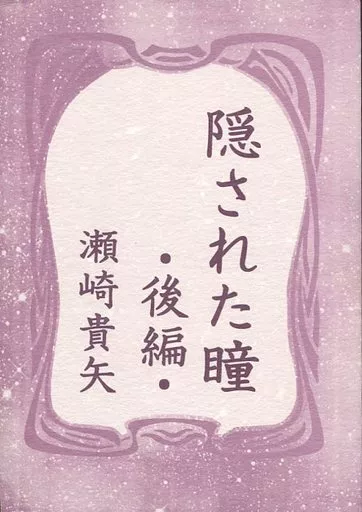 隠された瞳
・後編・
瀬崎貴矢